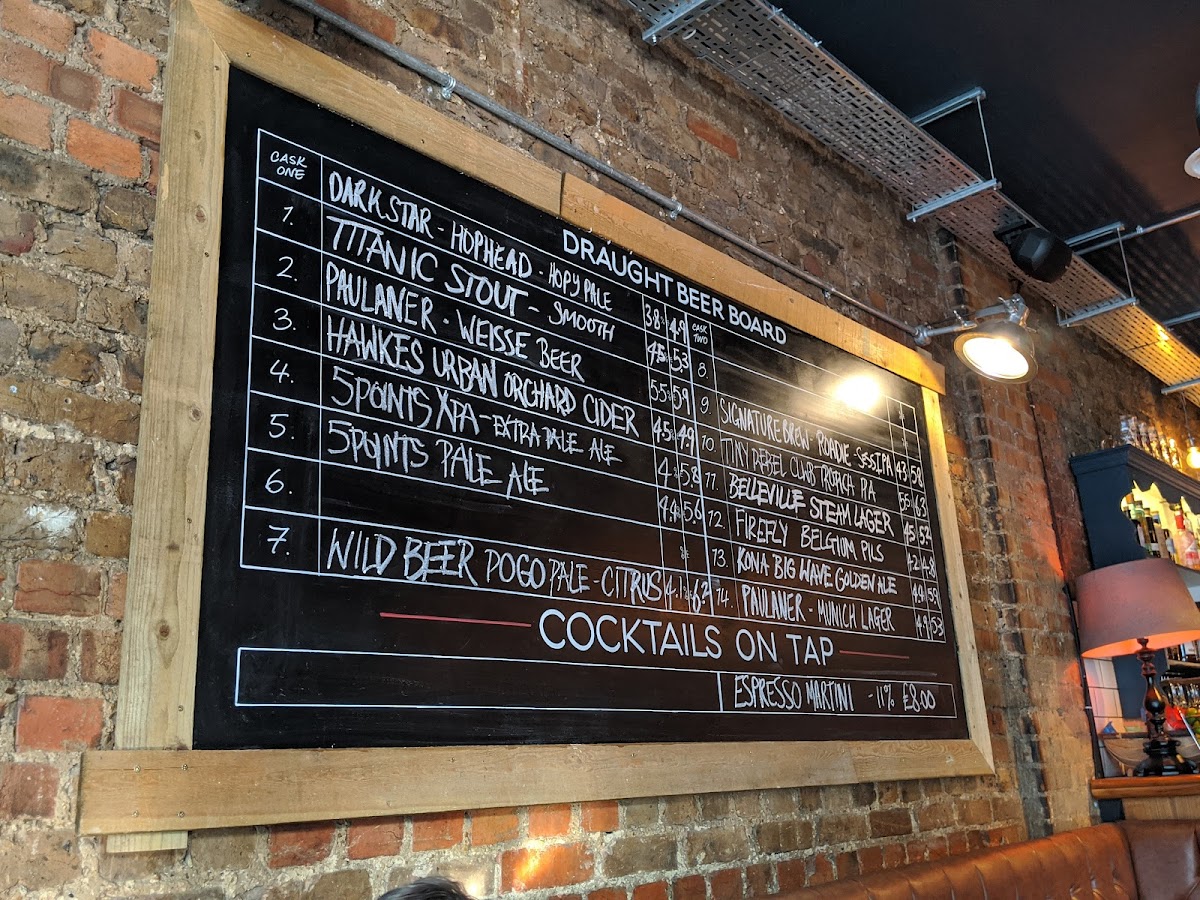 DRAUGHT BEER BOARD
CASK ONE DARK STAR - HOPHEAD - HOPY PALE 3.8% 4.9
1. TITANIC STOUT - SMOOTH 4.5% 5.3
2. PAULANER - WEISSE BEER 5.5% 5.9
3. HAWKES URBAN ORCHARD CIDER 4.5% 4.9
4. 5POINTS XPA - EXTRA PALE ALE 4.% 5.8
5. 5POINTS PALE ALE 4.4% 5.6
6. %
7. WILD BEER POGO PALE - CITRUS 4.1% 6.2
CASK TWO %
8. %
9. SIGNATURE BREW - ROADIE - SESS.IPA 4.3 5.8
10. TINY REBEL CLWB TROPICA IPA 5.5 6.3
11. BELLEVILLE STEAM LAGER 4.5 5.2
12. FIREFLY BELGIUM PILS 4.2 4.8
13. KONA BIG WAVE GOLDEN ALE 4.4 5.9
14. PAULANER - MUNICH LAGER 4.9 5.3
COCKTAILS ON TAP
ESPRESSO MARTINI - 11% £8.00